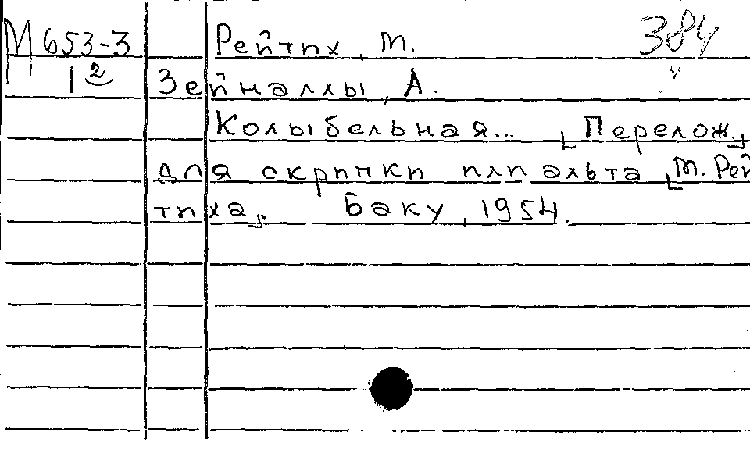 М 653-3 Рейтих, М. 384
1 2 Зейналлы, А.
Колыбельная... [Перелож.]
для скрипки или альта [М. Рей
тиха]. Баку, 1954.